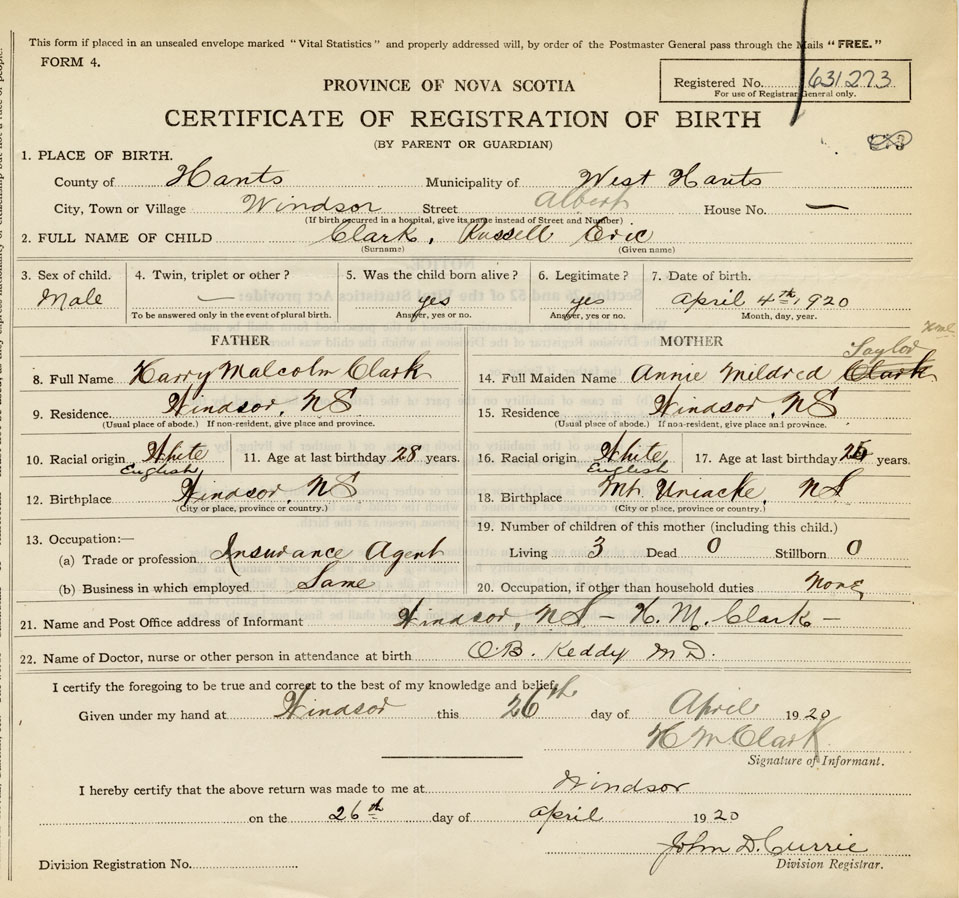 This form if placed in an unsealed envelope marked "Vital Statistics" and properly addressed will, by order of the Postmaster General pass through the Mails "FREE."
FORM 4.
Registered No. 631273
For use of Registrar General only.
PROVINCE OF NOVA SCOTIA
CERTIFICATE OF REGISTRATION OF BIRTH
(BY PARENT OR GUARDIAN)
1. PLACE OF BIRTH.
County of Hants Municipality of West Hants
City, Town or Village Windsor Street Albert House No. —
(If birth occurred in a hospital, give its name instead of Street and Number)
2. FULL NAME OF CHILD Clark, Russell Eric
(Surname) (Given name)
3. Sex of child. 4. Twin, triplet or other? 5. Was the child born alive? 6. Legitimate? 7. Date of birth.
Male — yes yes April 4th, 1920
To be answered only in the event of plural birth. Answer, yes or no. Answer, yes or no. Month, day, year.
FATHER MOTHER
Taylor
8. Full Name Harry Malcolm Clark 14. Full Maiden Name Annie Mildred Clark
9. Residence. Windsor, NS 15. Residence Windsor, NS
(Usual place of abode.) If non-resident, give place and province. (Usual place of abode.) If non-resident, give place and province.
10. Racial origin White 11. Age at last birthday 28 years. 16. Racial origin White 17. Age at last birthday 25 years.
English English
12. Birthplace Windsor, NS 18. Birthplace Mt. Uniacke, NS
(City or place, province or country.) (City or place, province or country.)
13. Occupation:— 19. Number of children of this mother (including this child.)
(a) Trade or profession Insurance Agent Living 3 Dead 0 Stillborn 0
(b) Business in which employed Same 20. Occupation, if other than household duties None
21. Name and Post Office address of Informant Windsor, NS – H. M. Clark –
22. Name of Doctor, nurse or other person in attendance at birth O.B. Keddy M.D.
I certify the foregoing to be true and correct to the best of my knowledge and belief.
Given under my hand at Windsor this 26th day of April 1920
H M Clark
Signature of Informant.
I hereby certify that the above return was made to me at Windsor
on the 26th day of April 1920
John D. Currie
Division Registrar.
Division Registration No.